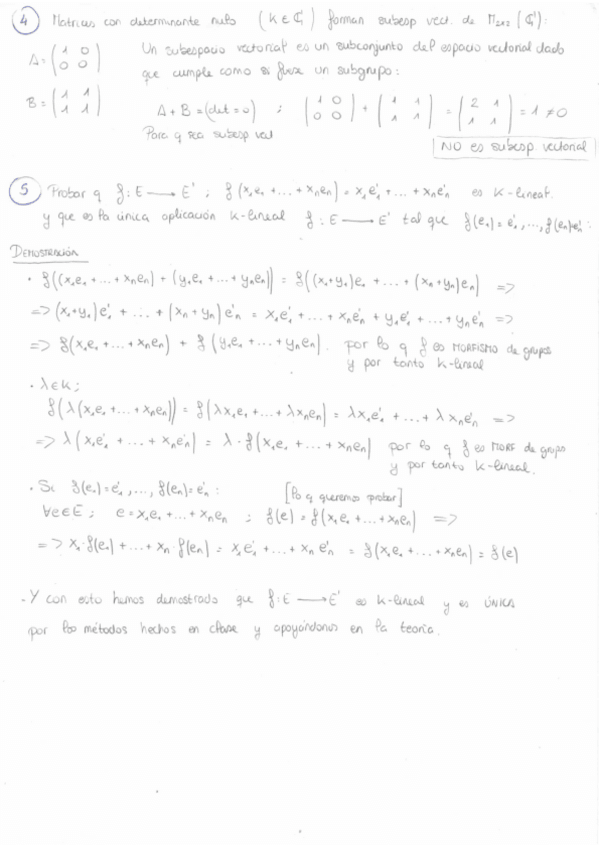 4 Matrices con determinante nulo (K ∈ ℂ) forman subesp vect. de M₂ₓ₂(ℂ):
A = (1 0; 0 0) Un subespacio vectorial es un subconjunto del espacio vectorial dado
que cumple como si fuese un subgrupo:
B = (1 1; 1 1) A + B = (det = 0) ; (1 0; 0 0) + (1 1; 1 1) = (2 1; 1 1) = 1 ≠ 0
Para q sea subesp vect
NO es subesp. vectorial
5 Probar q f: E → E' ; f(x₁e₁ + ... + xₙeₙ) = x₁e'₁ + ... + xₙe'ₙ es K-lineal.
y que es la única aplicación K-lineal f: E → E' tal que f(e₁) = e'₁, ..., f(eₙ) = e'ₙ:
DEMOSTRACIÓN
· f((x₁e₁ + ... + xₙeₙ) + (y₁e₁ + ... + yₙeₙ)) = f((x₁+y₁)e₁ + ... + (xₙ+yₙ)eₙ) =>
=> (x₁+y₁)e'₁ + ... + (xₙ+yₙ)e'ₙ = x₁e'₁ + ... + xₙe'ₙ + y₁e'₁ + ... + yₙe'ₙ =>
=> f(x₁e₁ + ... + xₙeₙ) + f(y₁e₁ + ... + yₙeₙ). por lo q f es MORFISMO de grupos
y por tanto K-lineal
· λ ∈ K;
f(λ(x₁e₁ + ... + xₙeₙ)) = f(λx₁e₁ + ... + λxₙeₙ) = λx₁e'₁ + ... + λxₙe'ₙ =>
=> λ(x₁e'₁ + ... + xₙe'ₙ) = λ · f(x₁e₁ + ... + xₙeₙ) por lo q f es MORF de grupo
y por tanto K-lineal.
· Si f(e₁) = e'₁, ..., f(eₙ) = e'ₙ: [lo q queremos probar]
∀e∈E; e = x₁e₁ + ... + xₙeₙ ; f(e) = f(x₁e₁ + ... + xₙeₙ) =>
=> x₁·f(e₁) + ... + xₙ·f(eₙ) = x₁e'₁ + ... + xₙe'ₙ = f(x₁e₁ + ... + xₙeₙ) = f(e)
· Y con esto hemos demostrado que f: E → E' es K-lineal y es ÚNICA
por los métodos hechos en clase y apoyándonos en la teoría.